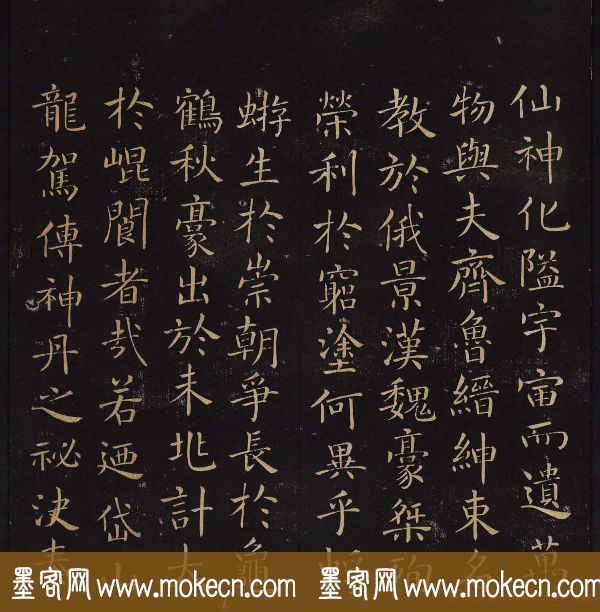 仙神化隘宇宙而遺萬
物與夫齊魯縉紳束名
教於俄景漢魏豪桀徇
榮利於窮塗何異乎蜉
蝣生於崇朝爭長於龜
鶴秋豪出於未兆計大
於崐閬者哉若迺岱山
龍駕傳神丹之祕決春
墨客网 www.mokecn.com 墨客网 www.mokecn.com